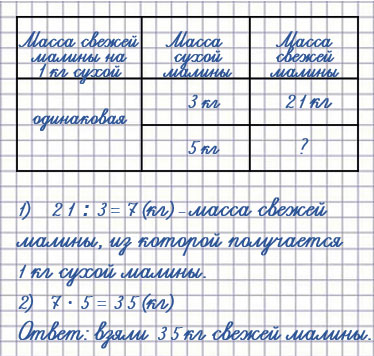 Масса свежей малины на 1 кг сухой
Масса сухой малины
Масса свежей малины
одинаковая
3 кг
21 кг
5 кг
?
1) 21 : 3 = 7 (кг) – масса свежей
малины, из которой получается
1 кг сухой малины.
2) 7 · 5 = 35 (кг)
Ответ: взяли 35 кг свежей малины.